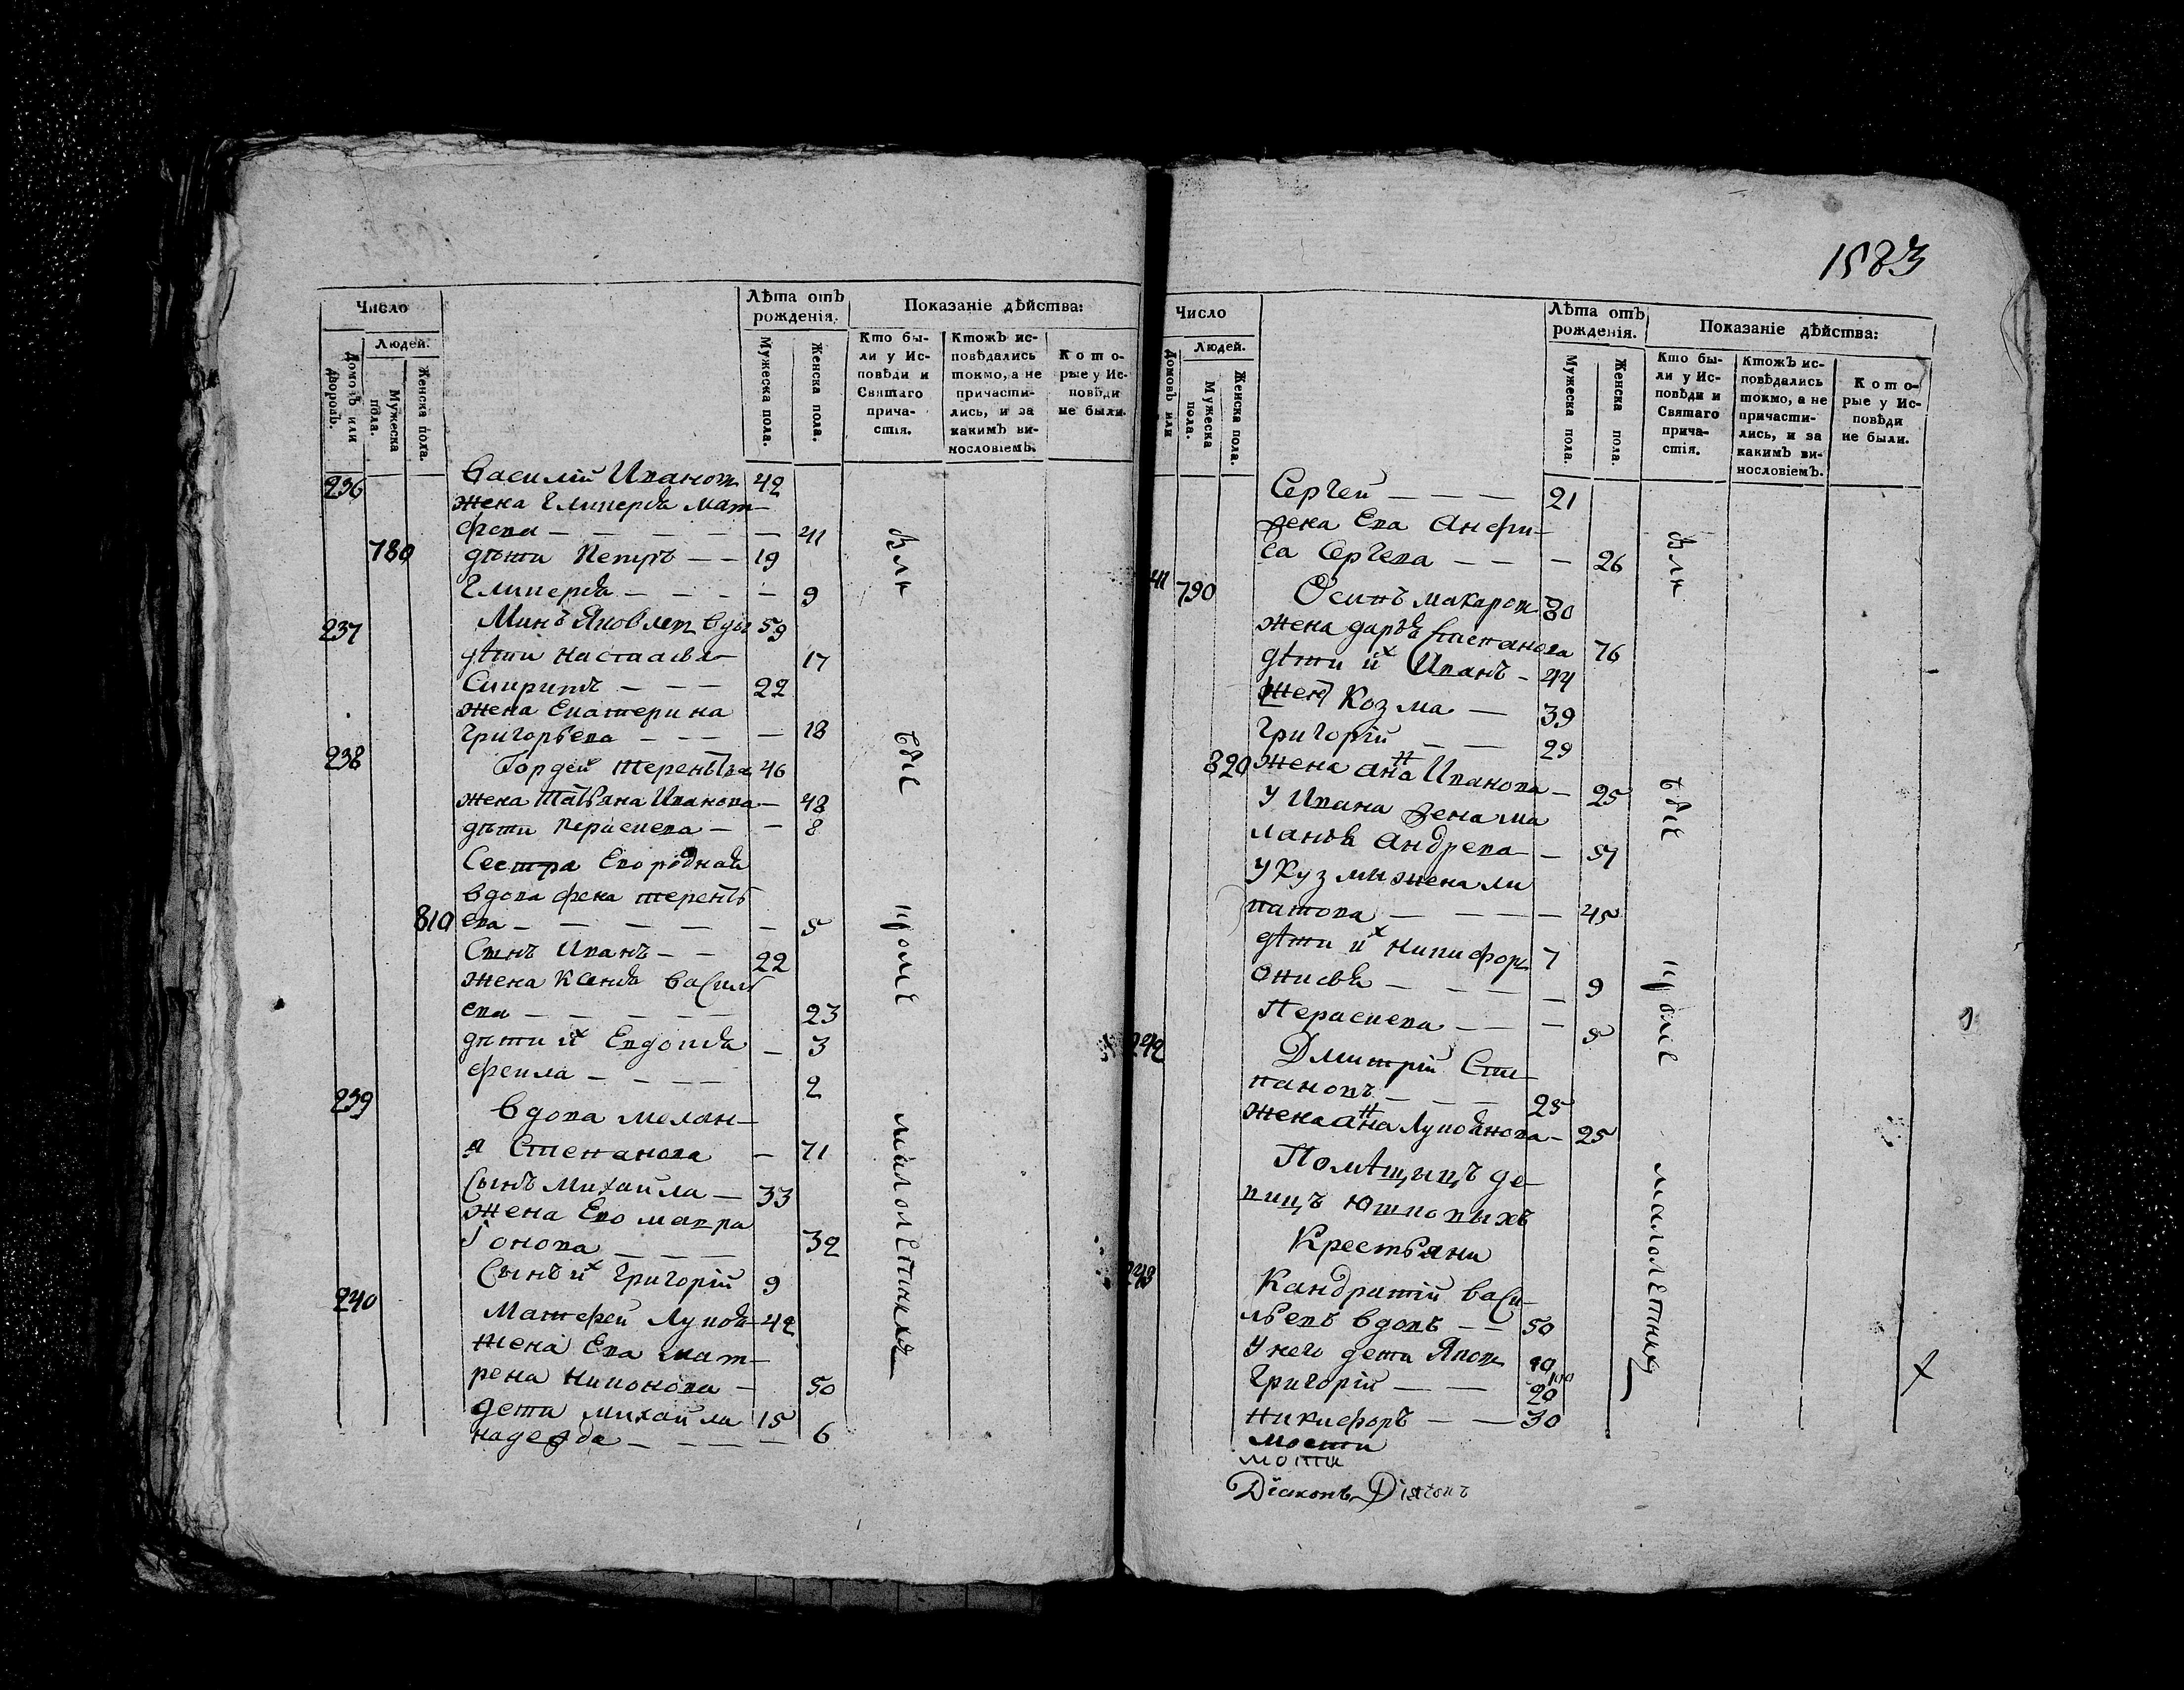 1583
Число
Людей.
Домовъ или дворовъ.
Мужеска пола.
Женска пола.
Лѣта отъ рожденія.
Мужеска пола.
Женска пола.
Показаніе дѣйства:
Кто были у Исповѣди и Святаго причастія.
Ктожъ исповѣдались токмо, а не причастились, и за какимъ винословіемъ.
Которые у Исповѣди не были.
236 Василій Иванов 42
жена Гликерія Мат-
фева — 41
780 дѣти Петръ — 19
Гликерія — 9
237 Минъ Яковлев вдов 59
дѣти Настасия 17
Спиридъ — 22
жена Екатерина
Григорьева — 18
238 Гордей Терентьев 46
жена Татьяна Иванова — 48
дѣти Параскева — 8
Сестра Его родная
вдова Фекла Теренть
810 ева — 5
Сынъ Иванъ — 22
жена Ксенія Василь
ева — 23
дѣти их Евдокия — 3
Фекла — 2
239 Вдова Мелан-
я Степанова — 71
Сынъ Михайла — 33
жена Его Мавра
32
Сынъ их Григорій 9
240 Матфей 42
жена Его Мат-
рена Никонова — 50
дети Михайла 15
надежда — 6
всѣ
были
кромѣ
малолетных
Число
Людей.
Домовъ или
Мужеска пола.
Женска пола.
Лѣта отъ рожденія.
Мужеска пола.
Женска пола.
Показаніе дѣйства:
Кто были у Исповѣди и Святаго причастія.
Ктожъ исповѣдались токмо, а не причастились, и за какимъ винословіемъ.
Которые у Исповѣди не были.
Сергей — 21
жена Его Анфи-
са Сергева — 26
41 790 Осипъ Макаров 80
жена дарья Степанова 76
дѣти их Иванъ — 44
Козма — 39
Григорій — 29
820 жена анна Иванова — 25
у Ивана жена ма
ланья Андрева — 51
у Кузмы жена
45
дѣти их Никифор 7
9
Параскева — 5
242 Дмитрій Сте-
пановъ — 25
жена анна — 25
Помѣщицъ де-
вицъ Юшковыхъ
Крестьяни
243 Кандратій Васи-
льевъ вдовъ — 50
У него дети Яков
Григорій — 20
Никифоръ — 30
Мости
Мости
Діаконъ Діаконъ
всѣ
были
кромѣ
малолетных